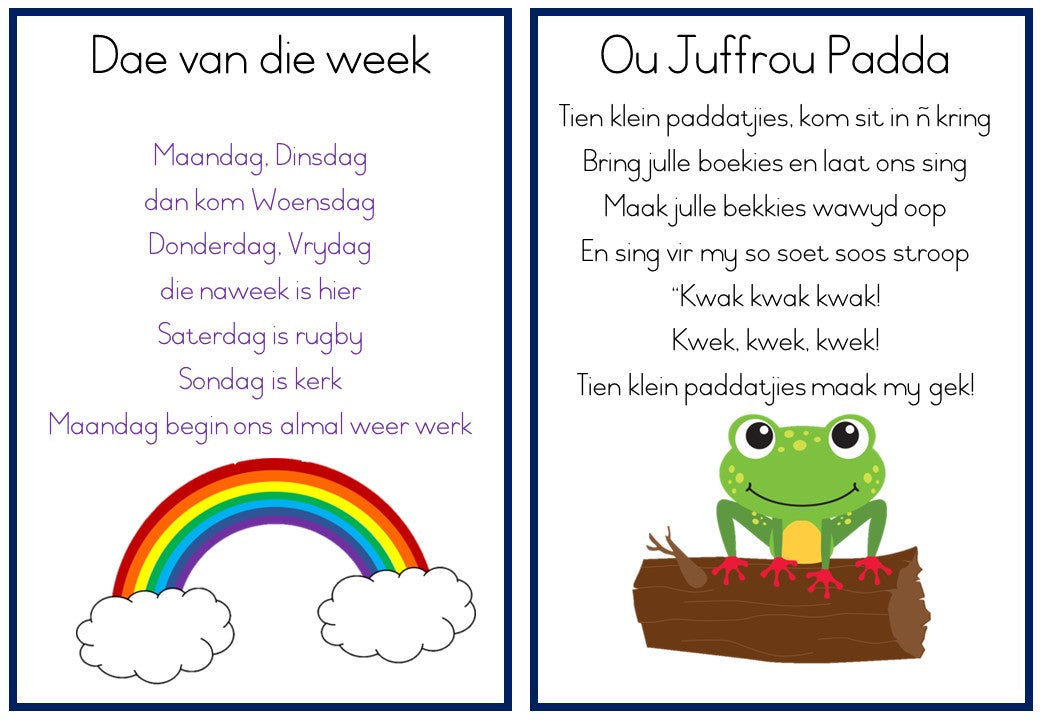 Dae van die week
Maandag, Dinsdag
dan kom Woensdag
Donderdag, Vrydag
die naweek is hier
Saterdag is rugby
Sondag is kerk
Maandag begin ons almal weer werk
Ou Juffrou Padda
Tien klein paddatjies, kom sit in ñ kring
Bring julle boekies en laat ons sing
Maak julle bekkies wawyd oop
En sing vir my so soet soos stroop
“Kwak kwak kwak!
Kwek, kwek, kwek!
Tien klein paddatjies maak my gek!